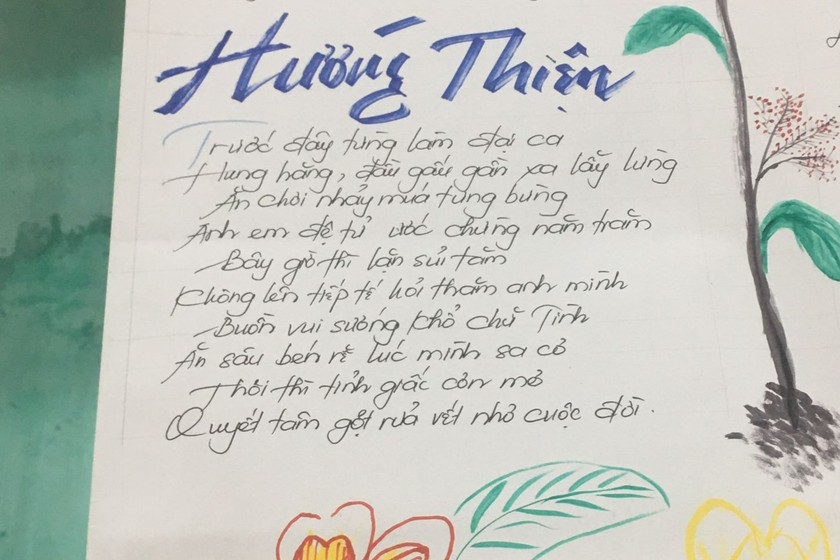 Hướng Thiện
Trước đây từng làm đại ca
Hung hăng, đầu gấu gần xa lẫy lừng
Ăn chơi nhảy múa tưng bừng
Anh em đệ tử ước chừng năm trăm
Bây giờ thì lặn sủi tăm
Không lên tiếp tế hỏi thăm anh mình
Buồn vui sướng khổ chữ Tình
Ăn sâu bén rễ lúc mình sa cơ
Thôi thì tỉnh giấc cơn mơ
Quyết tâm gột rửa vết nhơ cuộc đời.